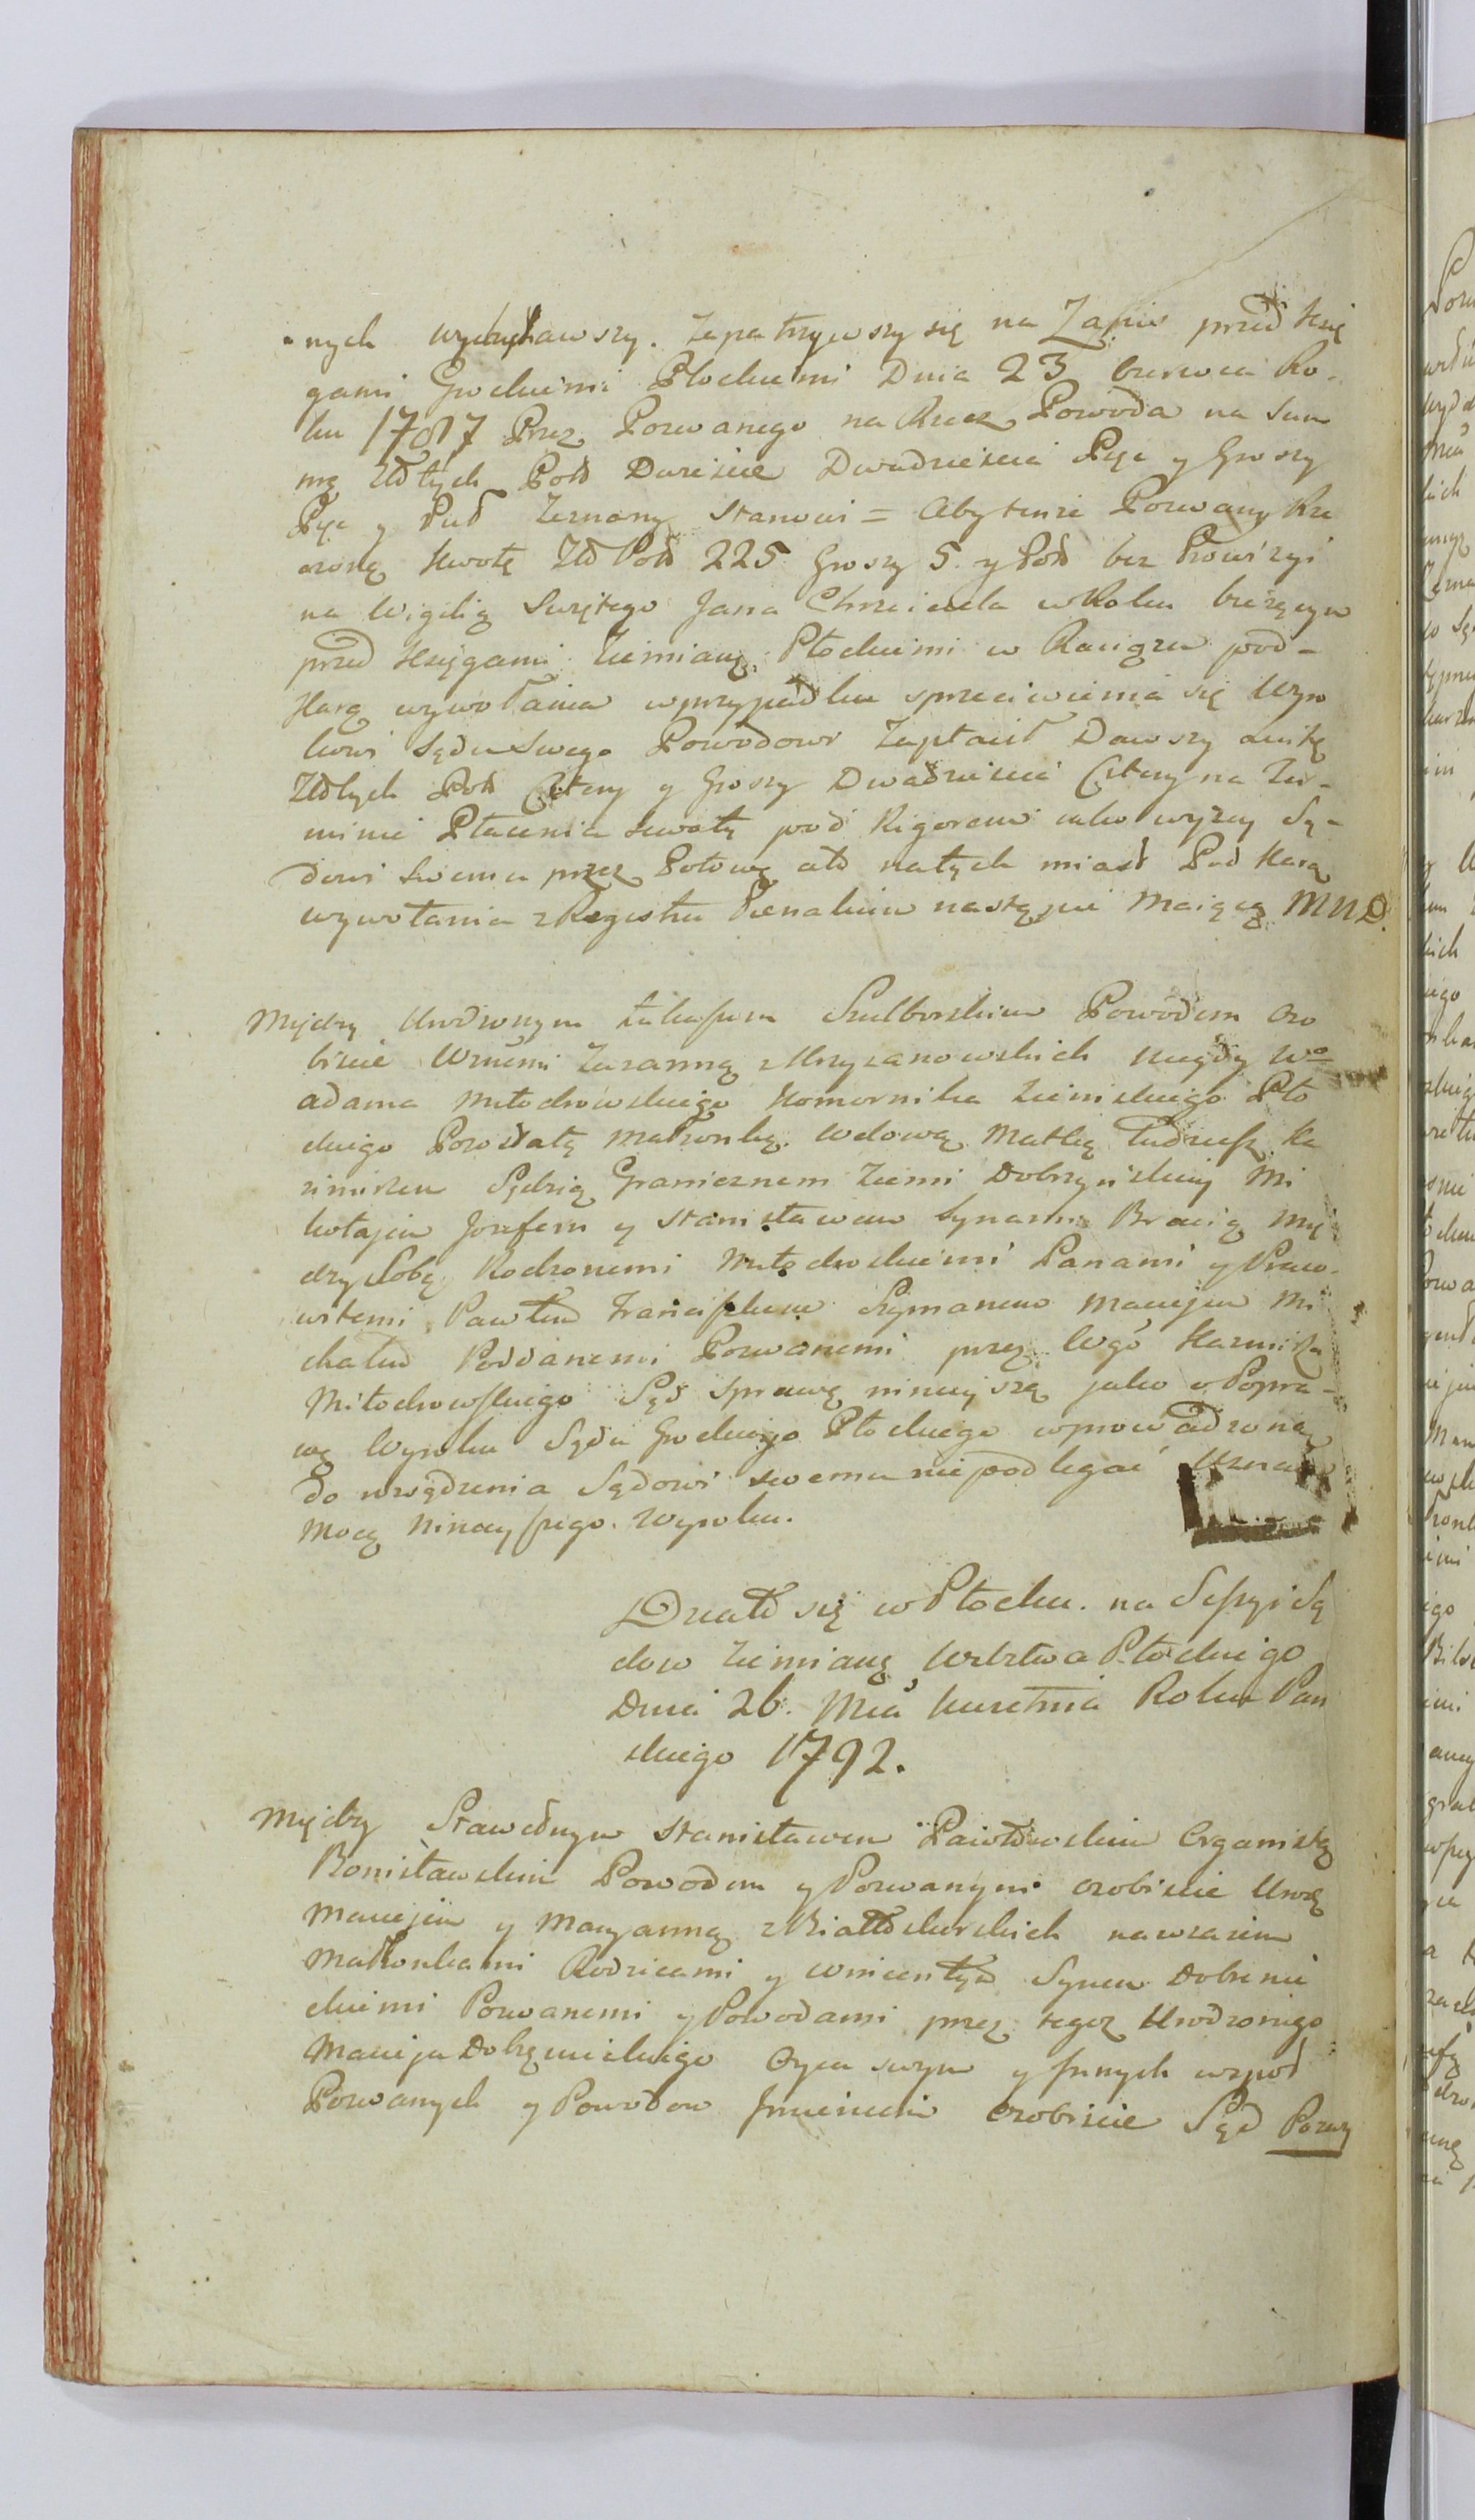 nych wysłuchawszy. Zapatrzywszy się na Zapis przed Xię
gami Grodzkiemi Płockiemi Dnia 23 Czerwca Ro-
ku 1787 Przez Pozwanego na Rzecz Powoda na Sum
mę Złłtych Pols Dwieście Dwadzieścia Pięć y Groszy
Pięć y Puł Zeznany Stanowi = Aby tenże Pozwany Rze
czoną Kwotę Złł Pols 225 Groszy 5. y Poł bez Prowizyi
na Wigilią Swiętego Jana Chrzciciela w Roku bieżącym
przed Xięgami Ziemiańs: Płockiemi w Raciążu pod-
Karą wywołania w przypadku sprzeciwienia się Wyro
kowi Sądu Swego Powodowi Zapłacił Dawszy
Złłtych Pols Cztery y Groszy Dwadzieścia Cztery na Ter-
minie Płacenia kwoty pod Rigorem iako wyżey Są-
dowi Swemu przez Połowę ato natych miast Pod Karą
wywołania z Regestru Penalium nastąpić Maiącą MND.

Między Urodzonym Łukaszem Szulborskim Powodem Oso
biście Wznemi Zuzanną z Krzyżanowskich niegdy Wo
Adama Miłodrowskiego Komornika Ziemskiego Pło
ckiego Pozostałą Małżonką. Wdową Matką Tudzież Ka
zimirzem Sędzią Granicznem Ziemi Dobrzyńskiey Mi
kołajem Jozefem y Stanisławem Synami Bracią Mię
dzy Sobą Rodzonemi Miłodrowskiemi Panami y Praco-
witemi Pawłem Franciszkiem Szymonem Maciejem Mi
chałem Poddanemi Pozwanemi przez Wgo Kazmirza
Miłodrowskiego Sąd Sprawę ninieyszą jako o Popra-
wę Wyroku Sądu Grodzkiego Płockiego wprowadzoną
do rozsądzenia Sądowi swemu niepodlegać Uznaie
Mocą Ninieyszego. Wyroku.

Działł się w Płocku. na Seszyi Są
dow Ziemiańs Wdztwa Płockiego
Dnia 26. Mca Kwietnia Roku Pań
skiego 1792.

Między Sławetnym Stanisławem Pawłowskim Organistą
Bonisławskim Powodem y Pozwanym osobiście Urodz
Maciejem y Maryanną z Białłoskorskich nawzaiem
Małżonkami Rodzicami y Wincentym Synem Dobrnie
ckiemi Pozwanemi y Powodami przez tegoż Urodzonego
Macieja Dobrznieckiego Oyca swym y Innych wspoł
Pozwanych y Powodow Imieniem osobiście Sąd Pozwy